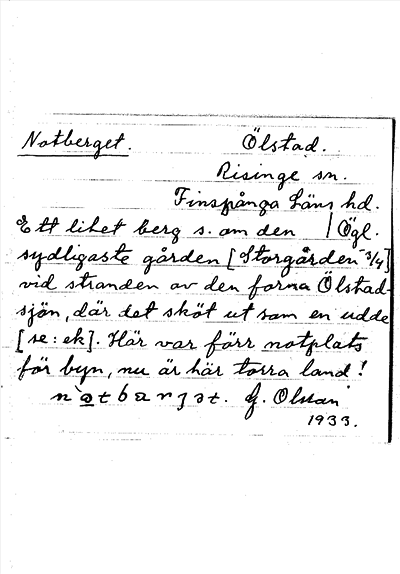 Notberget. Ölstad.
Risinge sn.
Finspånga läns hd.
Ett litet berg s. om den | Ögl.
sydligaste gården [Storgården 3/4]
vid stranden av den forna Ölstad-
sjön, där det sköt ut som en udde
[se: ek]. Här var förr notplats
för byn, nu är här torra land!
G. Olsson
1933.